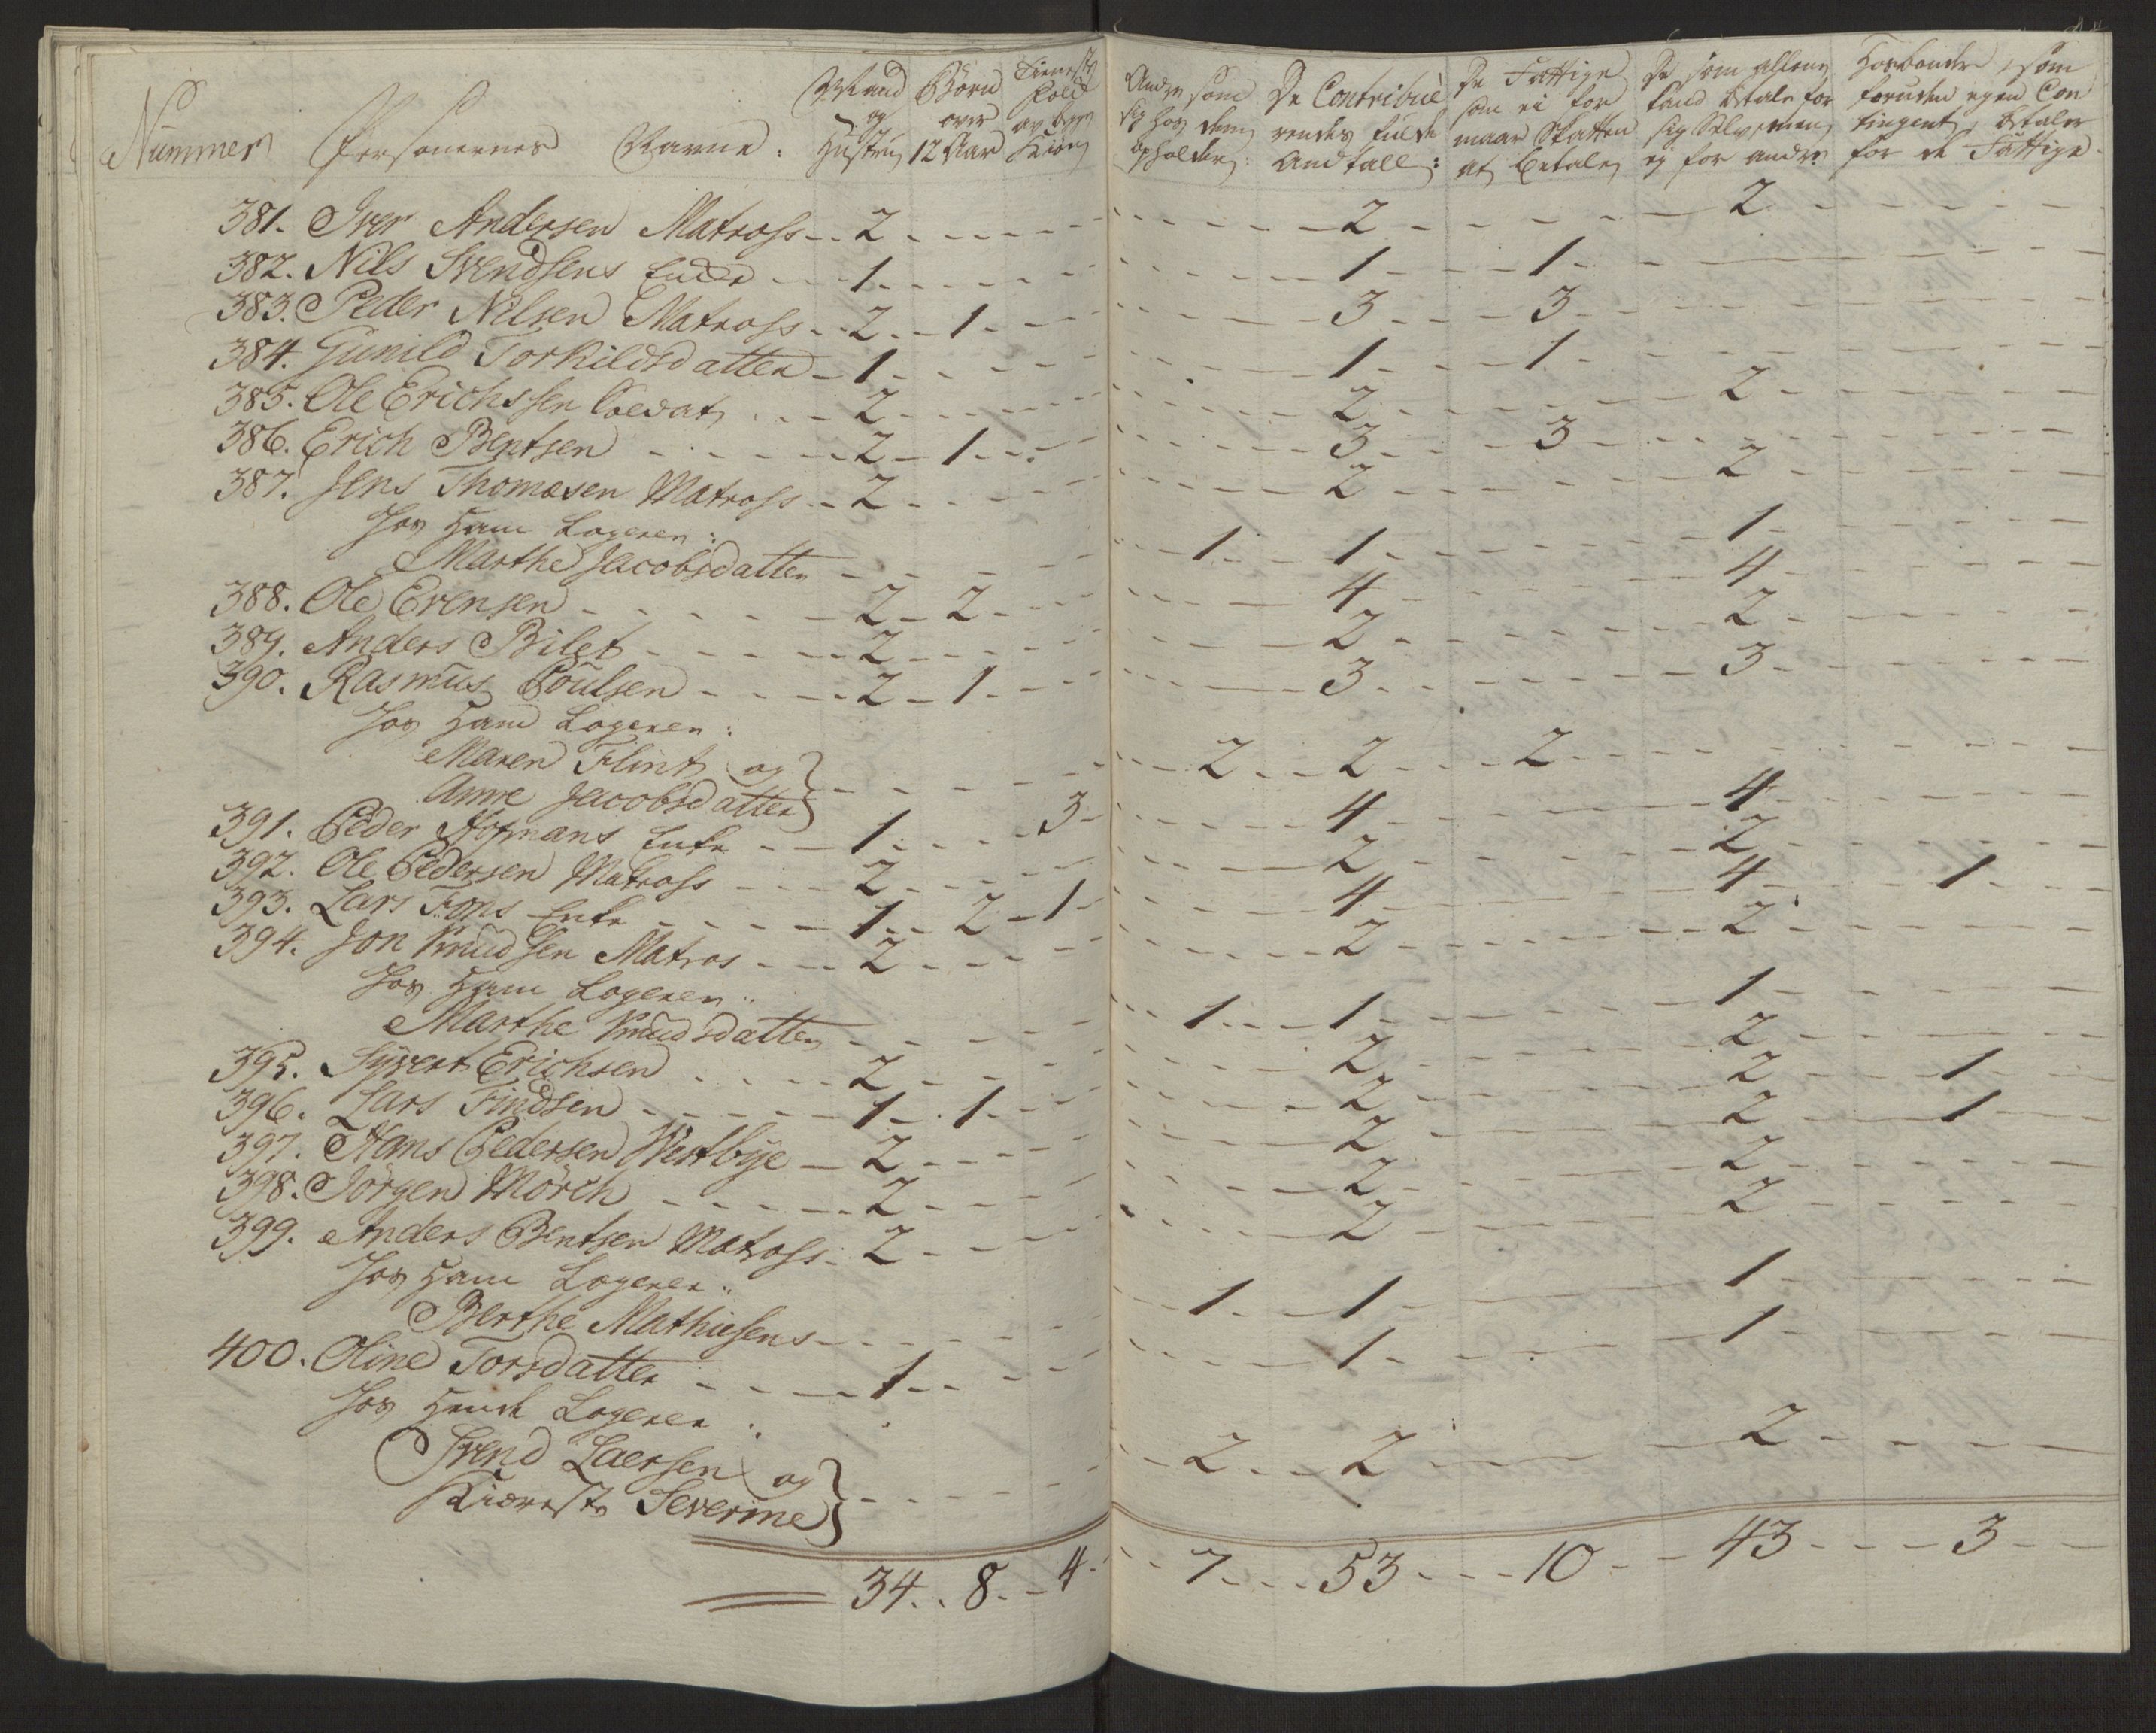 Nummer Personernes Navne: Mand og Hustru Børn over 12 Aar Tieneste Folk av begge Kiøn Andre som sig hos dem opholder: De Contribuerendes fulde Andtall: De Fattige som ei formaar Skatten at betale De som allene kand betale for sig Selv, men ej for andre Hosbonder, som foruden egen Contingent, betaler for de Fattige.
381. Iver Andersen Matross 2 2 2
382. Nils Svendsens Encke 1 1 1
383. Peder Nilsen Matross 2 1 3 3
384. Gunild Torkildsdatter 1 1 1
385. Ole Erichssen Soldat 2 2 2
386. Erich Bentsen 2 1 3 3
387. Jens Thomasen Matross 2 2 2
Hos Ham Logerer:
Marthe Jacobsdatter 1 1 1
388. Ole Evensen 2 2 4 4
389. Anders Bilet 2 2 2
390. Rasmus Poulsen 2 1 3 3
Hos Ham Logerer:
Maren Flint og
Anne Jacobsdatter 2 2 2
391. Peder Hofmans Enke 1 3 4 4
392. Ole Pedersen Matross 2 2 2
393. Lars Fons Enke 1 2 1 4 4 1
394. Jon Knudsen Matros 2 2 2
Hos Ham Logerer:
Marthe Knudsdatter 1 1 1
395. Syvert Erichsen 2 2 2
396. Lars Findsen 1 1 2 2 1
397. Hans Pedersen Westbye 2 2 2 1
398. Jörgen Mörch 2 2 2
399. Anders Bentsen Matross 2 2 2
Hos Ham Logerer:
Berthe Mathiesens 1 1 1
400. Oline Torsdatter 1 1 1
Hos Hende Logerer:
Svend Laersen og
Kiæreste Severine 2 2 2
34 8 4 7 53 10 43 3